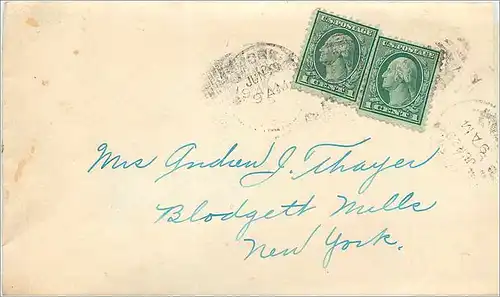 U.S. POSTAGE
1 CENT 1
U.S. POSTAGE
1 CENT 1
9 AM
Mrs Andrew J. Thayer
Blodgett Mills
New York.